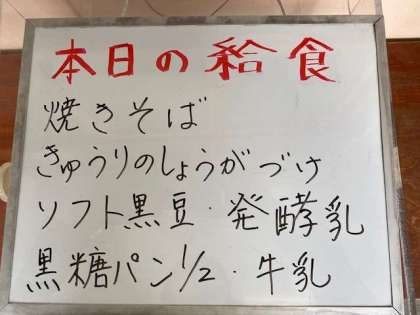 本日の給食
焼きそば
きゅうりのしょうがづけ
ソフト黒豆・発酵乳
黒糖パン1/2・牛乳